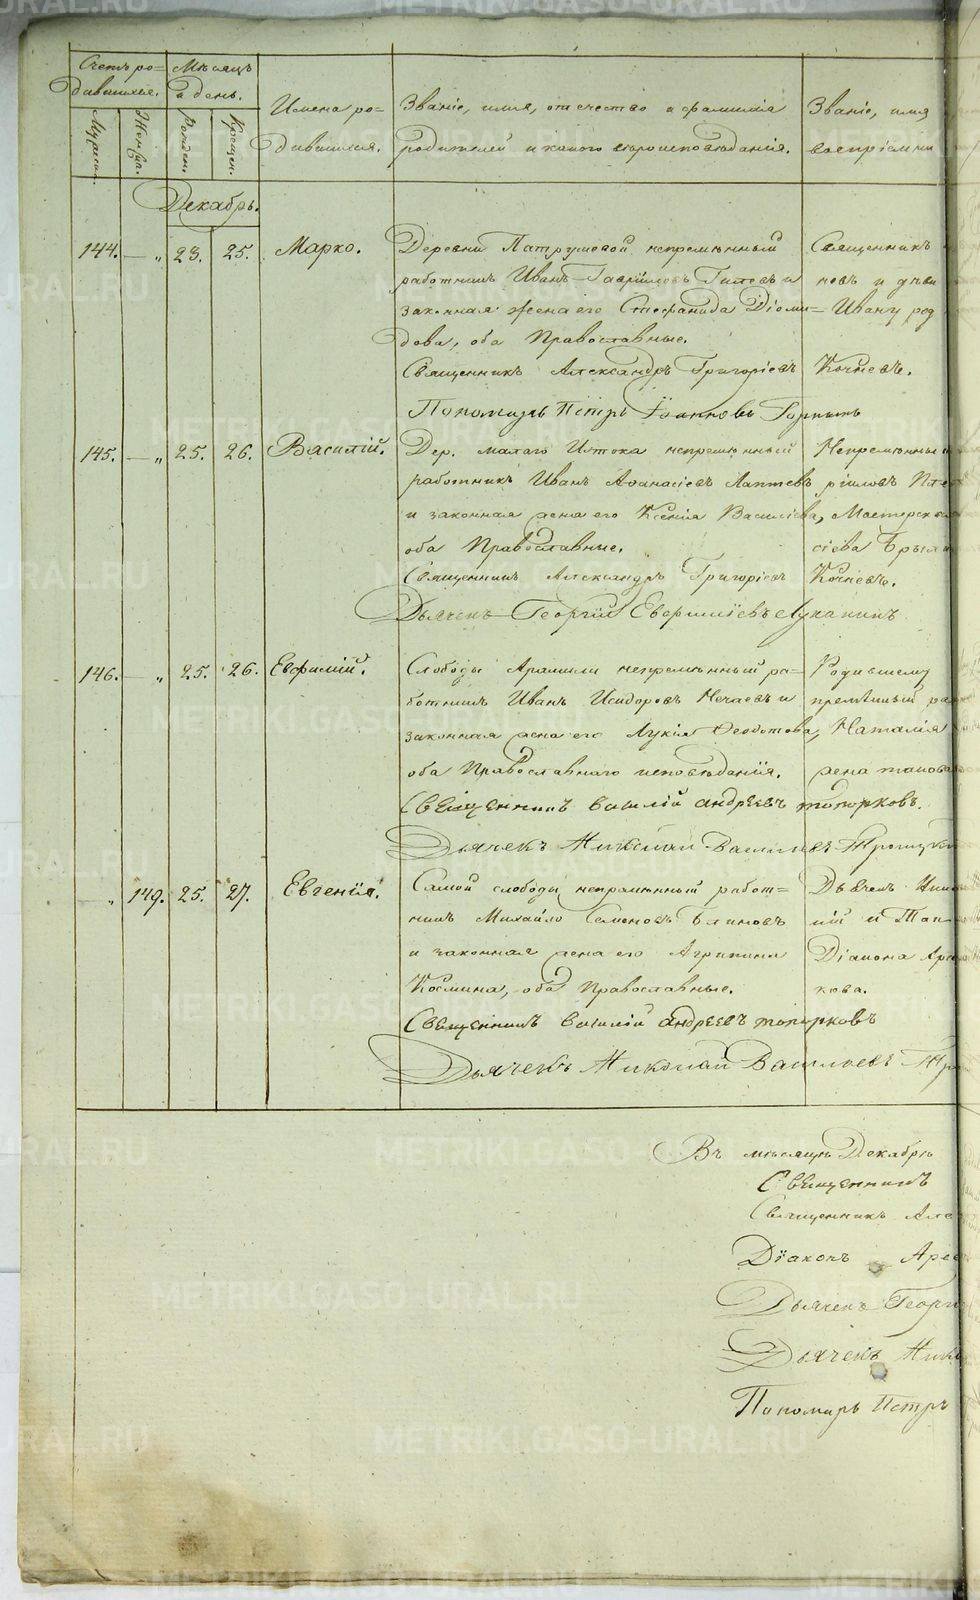 Счетъ ро-
дившихся.
Мѣсяцъ
и день.
Имена ро-
дившихся.
Званіе, имя, отечество и фамилія
родителей и какого вѣроисповѣданія.
Званіе, имя,
воспріемни
Мужеска.
Женска.
Рожден.
Крещен.
Декабрь.
144. — „ 23. 25. Марко.
Деревни Патрушевой непремѣнный
работникъ Иванъ Гавріиловъ Гилевъ и
законная жена его Стефанида Діоми-
дова, оба Православные.
Священникъ Александръ Григоріевъ Кочневъ.
Пономарь Петръ Іоанновъ
Священникъ
новъ и
Ивану род
145. — „ 25. 26. Василій.
Дер. малаго Истока непремѣнный
работникъ Иванъ Аѳанасіевъ Лаптевъ
и законная жена его Ксенія Василіева,
оба Православные.
Священникъ Александръ Григоріевъ Кочневъ.
Дьячекъ Георгій Евфиміевъ Луканинъ
Непремѣнный
ріиловъ
Мастерск
сіева
146. — „ 25. 26. Евфимій.
Слободы Арамили непремѣнный ра-
ботникъ Иванъ Исидоровъ Нечаевъ и
законная жена его Лукія Ѳеодотова,
оба Православнаго исповѣданія.
Священникъ василій андреевъ топорковъ.
Дьячекъ Николай Васильевъ
Родившему
премѣнный ра
Наталія
жена такова
„ 149. 25. 27. Евгенія.
Самой слободы непремѣнный работ-
никъ Михайло Семеновъ Блиновъ
и законная жена его Агрипина
Космина, оба Православные.
Священникъ василій андреевъ топорковъ
Дьячекъ Николай Васильевъ
Дьячекъ
ій и
Діакона Арс
кова.
Въ мѣсяцѣ Декабрѣ
Священникъ
Священникъ Але
Діаконъ Арсе
Дьячекъ Георгі
Дьячекъ Нико
Пономарь Петръ
METRIKI.GASO-URAL.RU